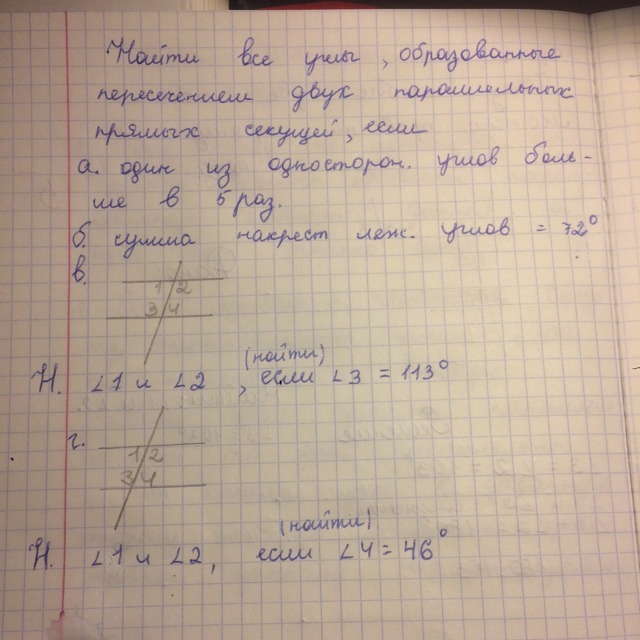 Найти все углы, образованные
пересечением двух параллельных
прямых секущей, если
а. один из односторон. углов боль-
ше в 5 раз.
б. сумма накрест леж. углов = 72°
в.
1 2
3 4
(найти)
Н. ∠1 и ∠2, если ∠3 = 113°
г.
1 2
3 4
(найти)
Н. ∠1 и ∠2, если ∠4 = 46°